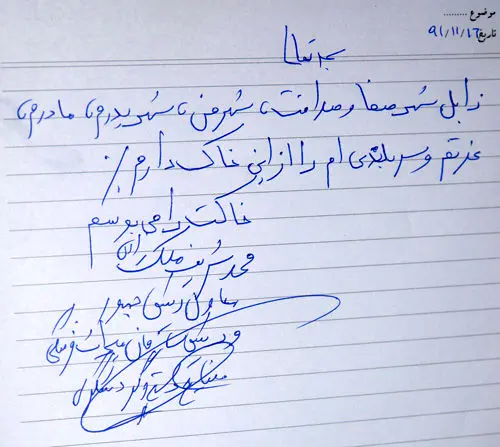 موضوع ..........
تاریخ ۹۱/۱۱/۱۶
بسمه تعالی
زابل شهر صفا و صداقت، شهر من، شهر پدرم، مادرم،
عزتم و سربلندی ام را از این خاک دارم.
خاکت را می بوسم
محمد شریف ملک
معاون رئیس جمهور
و رئیس سازمان میراث فرهنگی
صنایع دستی و گردشگری